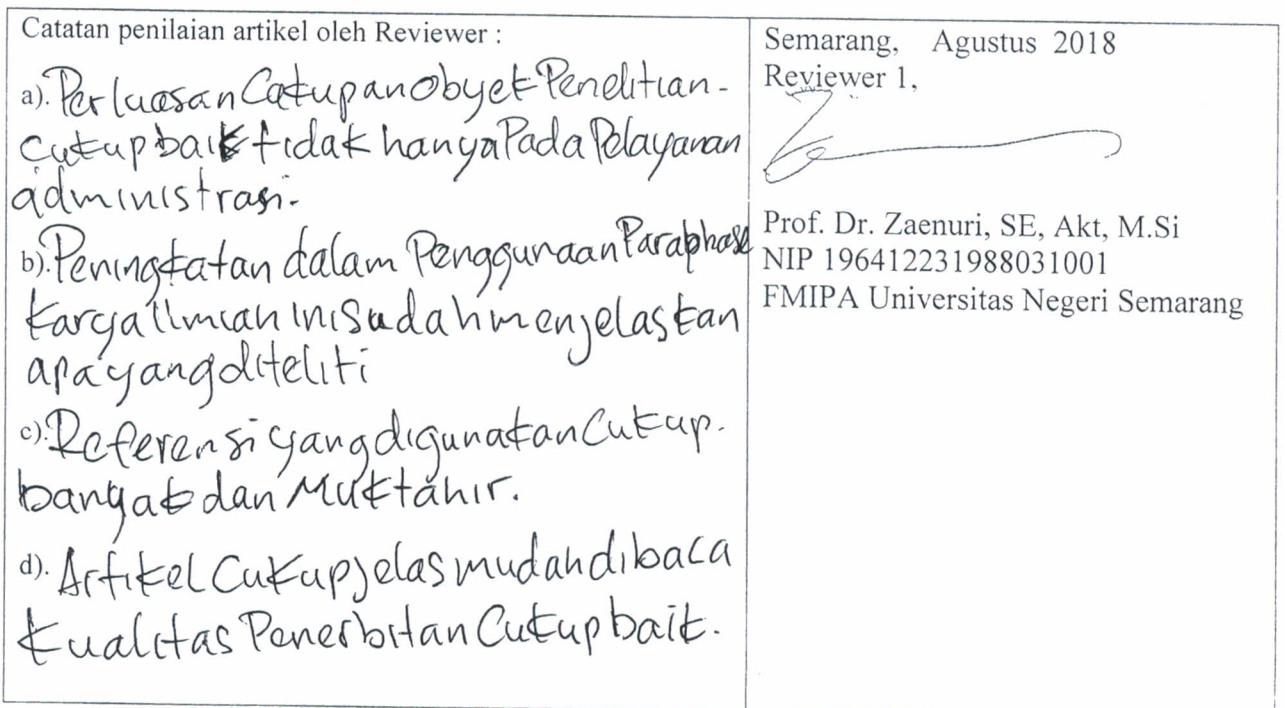 Catatan penilaian artikel oleh Reviewer :
a). Perluasan Cakupan Obyek Penelitian -
cukup baik tidak hanya Pada Pelayanan
administrasi.
b). Peningkatan dalam Penggunaan Paraphase
karya ilmiah ini Sudah menjelaskan
apa yang diteliti
c). Referensi yang digunakan Cukup.
banyak dan Muktahir.
d). Artikel Cukup jelas mudah dibaca
kualitas Penerbitan Cukup baik.
Semarang, Agustus 2018
Reviewer 1,
Prof. Dr. Zaenuri, SE, Akt, M.Si
NIP 196412231988031001
FMIPA Universitas Negeri Semarang